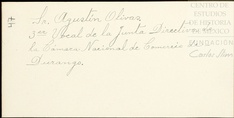 CENTRO DE
ESTUDIOS
DE HISTORIA
DE MEXICO
Sr. Agustín Olivas
3er. Vocal de la Junta Directiva de
la Cámara Nacional de Comercio
Durango.
FUNDACIÓN
Carlos Slim